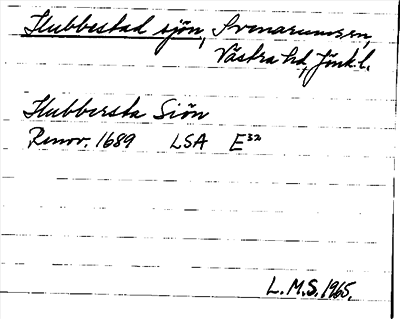 Hubbestad sjön, Svenarumssn,
Västra hd, Jönk.l.
Hubbersta Siön
Renov. 1689 LSA E³²
L.M.S. 1965.